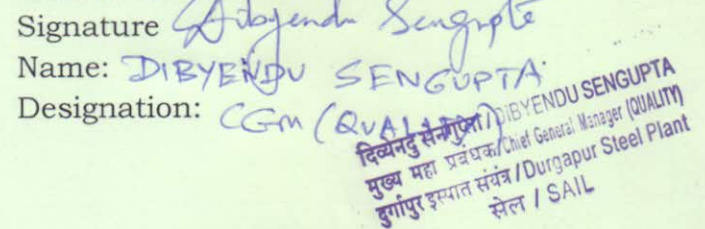 Signature Dibyendu Sengupta
Name: DIBYENDU SENGUPTA
Designation: CGM (QUALITY)
दिव्येन्दु सेनगुप्ता / DIBYENDU SENGUPTA
मुख्य महा प्रबंधक/Chief General Manager (QUALITY)
दुर्गापुर इस्पात संयंत्र / Durgapur Steel Plant
सेल / SAIL